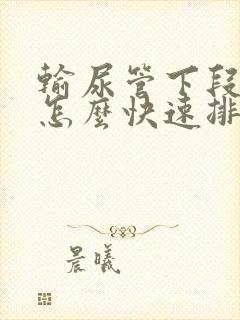 輸尿管下段
怎麼快速排
晨曦